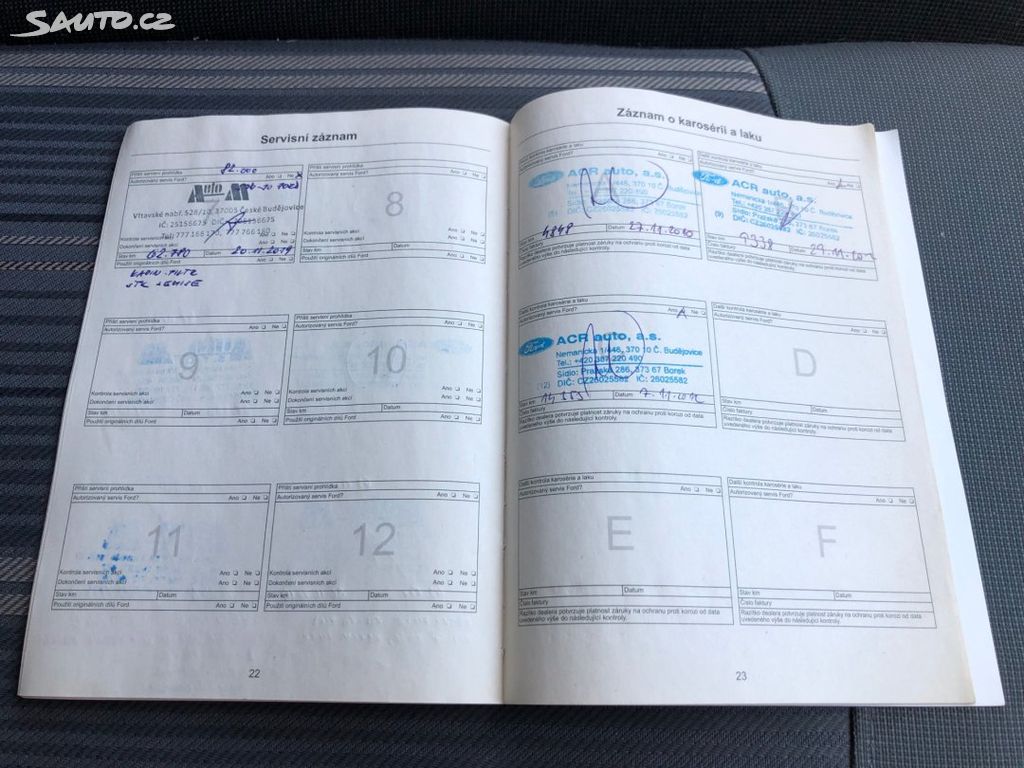 SAUTO.CZ
Servisní záznam
Příští servisní prohlídka
82.000
Autorizovaný servis Ford? Ano Ne
7
Auto
Vltavské nabř. 528/10, 37005 České Budějovice
IČ: 25156675 DIČ:
Tel: 777 166 170, 777 766 180
Kontrola servisních akcí Ano Ne
Dokončení servisních akcí Ano Ne
Stav km Datum 20.11.2019
Použití originálních dílů Ford Ano Ne
Příští servisní prohlídka
Autorizovaný servis Ford? Ano Ne
8
Kontrola servisních akcí Ano Ne
Dokončení servisních akcí Ano Ne
Stav km Datum
Použití originálních dílů Ford Ano Ne
Příští servisní prohlídka
Autorizovaný servis Ford? Ano Ne
9
Kontrola servisních akcí Ano Ne
Dokončení servisních akcí Ano Ne
Stav km Datum
Použití originálních dílů Ford Ano Ne
Příští servisní prohlídka
Autorizovaný servis Ford? Ano Ne
10
Kontrola servisních akcí Ano Ne
Dokončení servisních akcí Ano Ne
Stav km Datum
Použití originálních dílů Ford Ano Ne
Příští servisní prohlídka
Autorizovaný servis Ford? Ano Ne
11
Kontrola servisních akcí Ano Ne
Dokončení servisních akcí Ano Ne
Stav km Datum
Použití originálních dílů Ford Ano Ne
Příští servisní prohlídka
Autorizovaný servis Ford? Ano Ne
12
Kontrola servisních akcí Ano Ne
Dokončení servisních akcí Ano Ne
Stav km Datum
Použití originálních dílů Ford Ano Ne
22
Záznam o karosérii a laku
Další kontrola karosérie a laku
Autorizovaný servis Ford? Ano Ne
Ford ACR auto, a.s.
Nemanická 1/446, 370 10 Č. Budějovice
Tel.: +420 387 220 490
Sídlo: Pražská 286, 373 67 Borek
(5) DIČ: CZ26025582 IČ: 26025582
Stav km 4848 Datum 27.11.2010
Číslo faktury
Razítko dealera potvrzuje platnost záruky na ochranu proti korozi od data
uvedeného výše do následující kontroly.
Další kontrola karosérie a laku
Autorizovaný servis Ford? Ano Ne
Ford ACR auto, a.s.
Nemanická 1/446, 370 10 Č. Budějovice
Tel.: +420 387 220 490
Sídlo: Pražská
(9) DIČ: CZ26025582 IČ: 26025582
Stav km 9338 Datum
Číslo faktury
Razítko dealera potvrzuje platnost záruky na ochranu proti korozi od data
uvedeného výše do následující kontroly.
Další kontrola karosérie a laku
Autorizovaný servis Ford? Ano Ne
Ford ACR auto, a.s.
Nemanická 1/446, 370 10 Č. Budějovice
Tel.: +420 387 220 490
Sídlo: Pražská 286, 373 67 Borek
(12) DIČ: CZ26025582 IČ: 26025582
Stav km Datum 7.11.2012
Číslo faktury
Razítko dealera potvrzuje platnost záruky na ochranu proti korozi od data
uvedeného výše do následující kontroly.
Další kontrola karosérie a laku
Autorizovaný servis Ford? Ano Ne
D
Stav km
Číslo faktury Datum
Razítko dealera potvrzuje platnost záruky na ochranu proti korozi od data
uvedeného výše do následující kontroly.
Další kontrola karosérie a laku
Autorizovaný servis Ford? Ano Ne
E
Stav km Datum
Číslo faktury
Razítko dealera potvrzuje platnost záruky na ochranu proti korozi od data
uvedeného výše do následující kontroly.
Další kontrola karosérie a laku
Autorizovaný servis Ford? Ano Ne
F
Stav km Datum
Číslo faktury
Razítko dealera potvrzuje platnost záruky na ochranu proti korozi od data
uvedeného výše do následující kontroly.
23